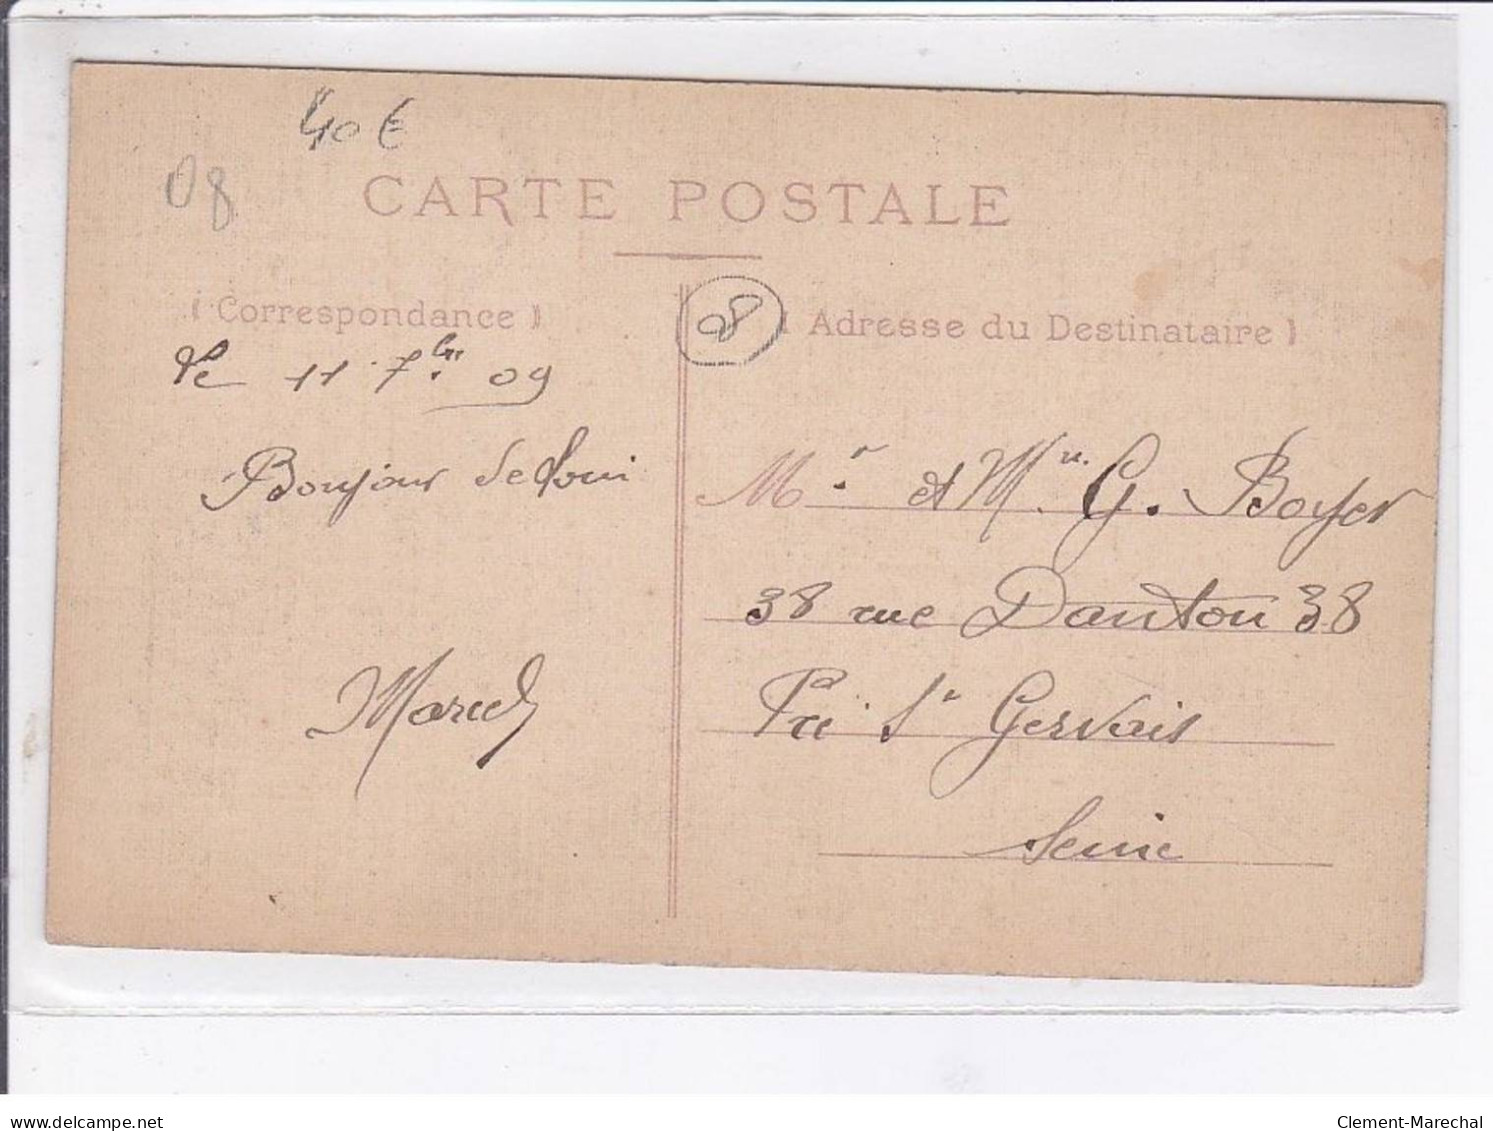 40 €
08
CARTE POSTALE
( Correspondance )
8
( Adresse du Destinataire )
Le 11 7bre 09
Bonjour de
Marcel
Mr et Mme G. Boyer
38 rue Danton 38
Pré St Gervais
Seine
delcampe.net
Clement-Marechal